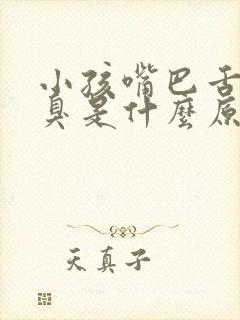 小孩嘴巴舌
臭是什麼原
天真子